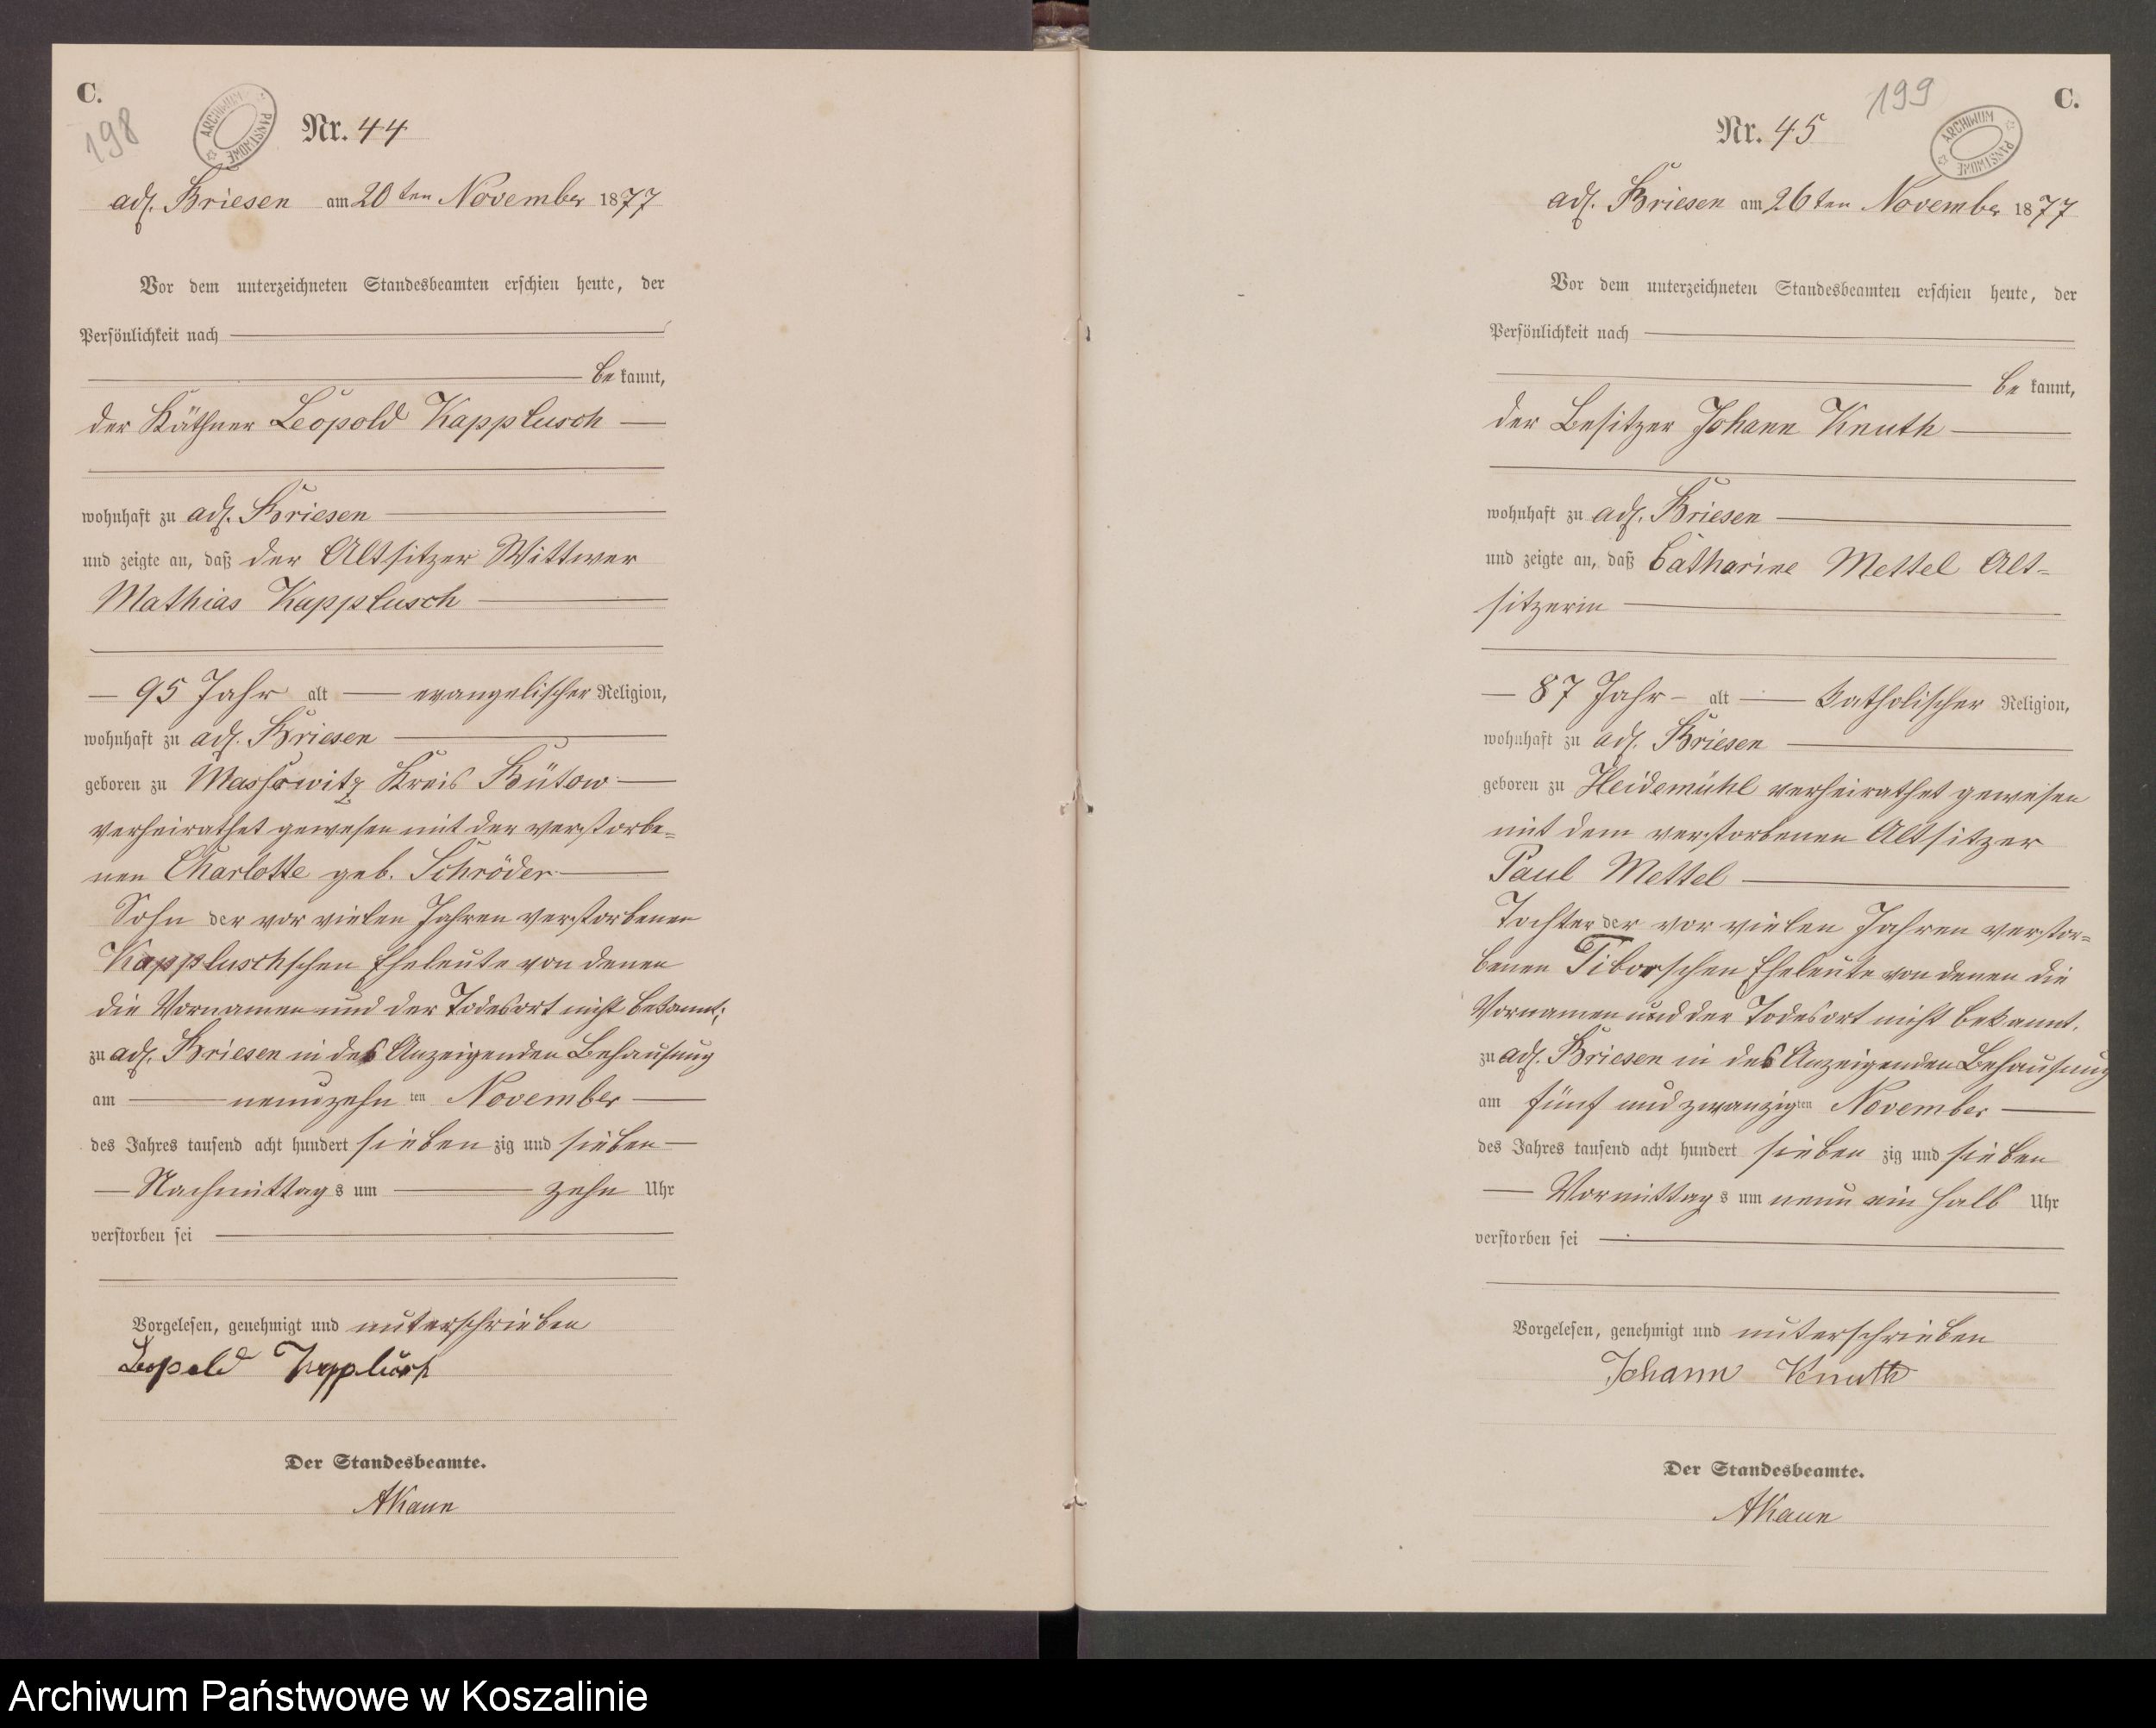 C.
198
ARCHIWUM PAŃSTWOWE
Nr. 44
adl. Briesen am 20ten November 1877
Vor dem unterzeichneten Standesbeamten erschien heute, der
Persönlichkeit nach
be kannt,
der Käthner Leopold Kapplusch
wohnhaft zu adl. Briesen
und zeigte an, daß der Altsitzer Wittwer
Mathias Kapplusch
95 Jahr alt evangelischer Religion,
wohnhaft zu adl. Briesen
geboren zu Massowitz Kreis Bütow
verheirathet gewesen mit der verstorbe=
nen Charlotte geb. Schröder
Sohn der vor vielen Jahren verstorbenen
Kappluschschen Eheleute von denen
die Vornamen und der Todesort nicht bekannt;
zu adl. Briesen in des Anzeigenden Behausung
am neunzehn ten November
des Jahres tausend acht hundert sieben zig und sieben
Nachmittag s um zehn Uhr
verstorben sei
Vorgelesen, genehmigt und unterschrieben
Leopold Kapplusch
Der Standesbeamte.
AKaun
199
C.
ARCHIWUM PAŃSTWOWE
Nr. 45
adl. Briesen am 26ten November 1877
Vor dem unterzeichneten Standesbeamten erschien heute, der
Persönlichkeit nach
be kannt,
der Besitzer Johann Knuth
wohnhaft zu adl. Briesen
und zeigte an, daß Catharine Mettel Alt=
sitzerin
87 Jahr alt katholischer Religion,
wohnhaft zu adl. Briesen
geboren zu Heidemühl verheirathet gewesen
mit dem verstorbenen Altsitzer
Paul Mettel
Tochter der vor vielen Jahren verstor=
benen Tiborschen Eheleute von denen die
Vornamen und der Todesort nicht bekannt.
zu adl. Briesen in des Anzeigenden Behausung
am fünf und zwanzig ten November
des Jahres tausend acht hundert sieben zig und sieben
Vormittag s um neun ein halb Uhr
verstorben sei
Vorgelesen, genehmigt und unterschrieben
Johann Knuth
Der Standesbeamte.
AKaun
Archiwum Państwowe w Koszalinie